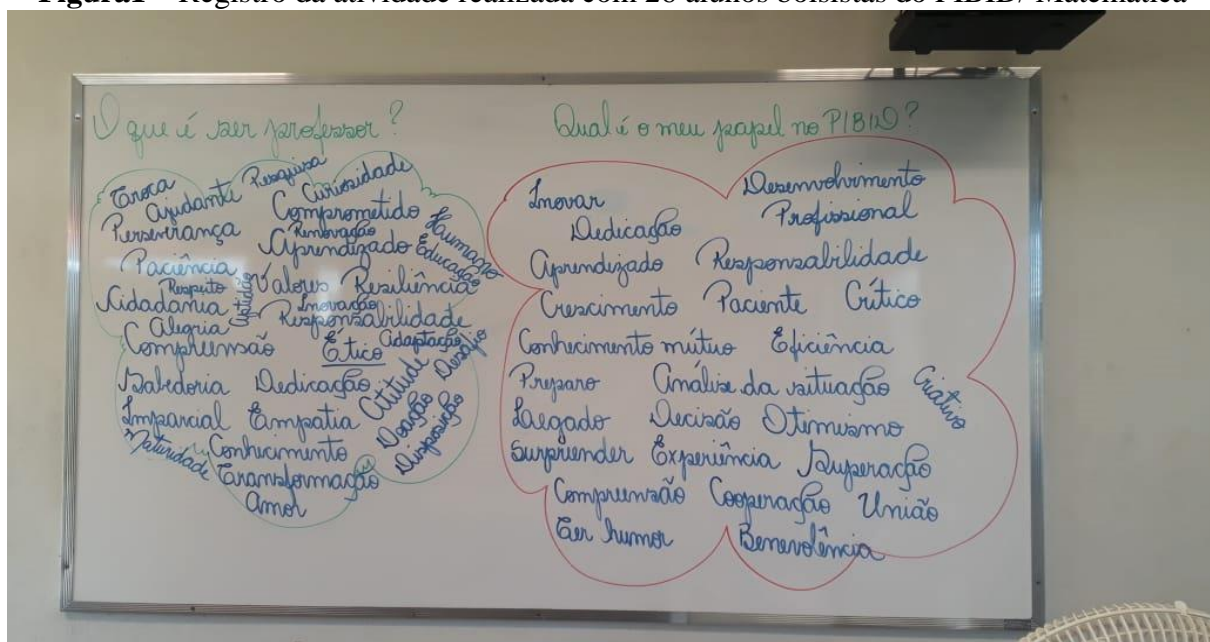 O que é ser professor?
Troca
Ajudante
Pesquisa
Curiosidade
Perseverança
Comprometido
Renovação
Aprendizado
Humano
Educação
Paciência
Respeito
Aptidão
Valores
Resiliência
Cidadania
Inovação
Alegria
Responsabilidade
Compreensão
Ético
Adaptação
Desafio
Sabedoria
Dedicação
Atitude
Doação
Disposição
Imparcial
Empatia
Maturidade
Conhecimento
Transformação
Amor
Qual é o meu papel no PIBID?
Inovar
Desenvolvimento
Profissional
Dedicação
Aprendizado Responsabilidade
Crescimento Paciente Crítico
Conhecimento mútuo Eficiência
Preparo Análise da situação Criativo
Legado Decisão Otimismo
Surpreender Experiência Superação
Compreensão Cooperação União
Ter humor Benevolência